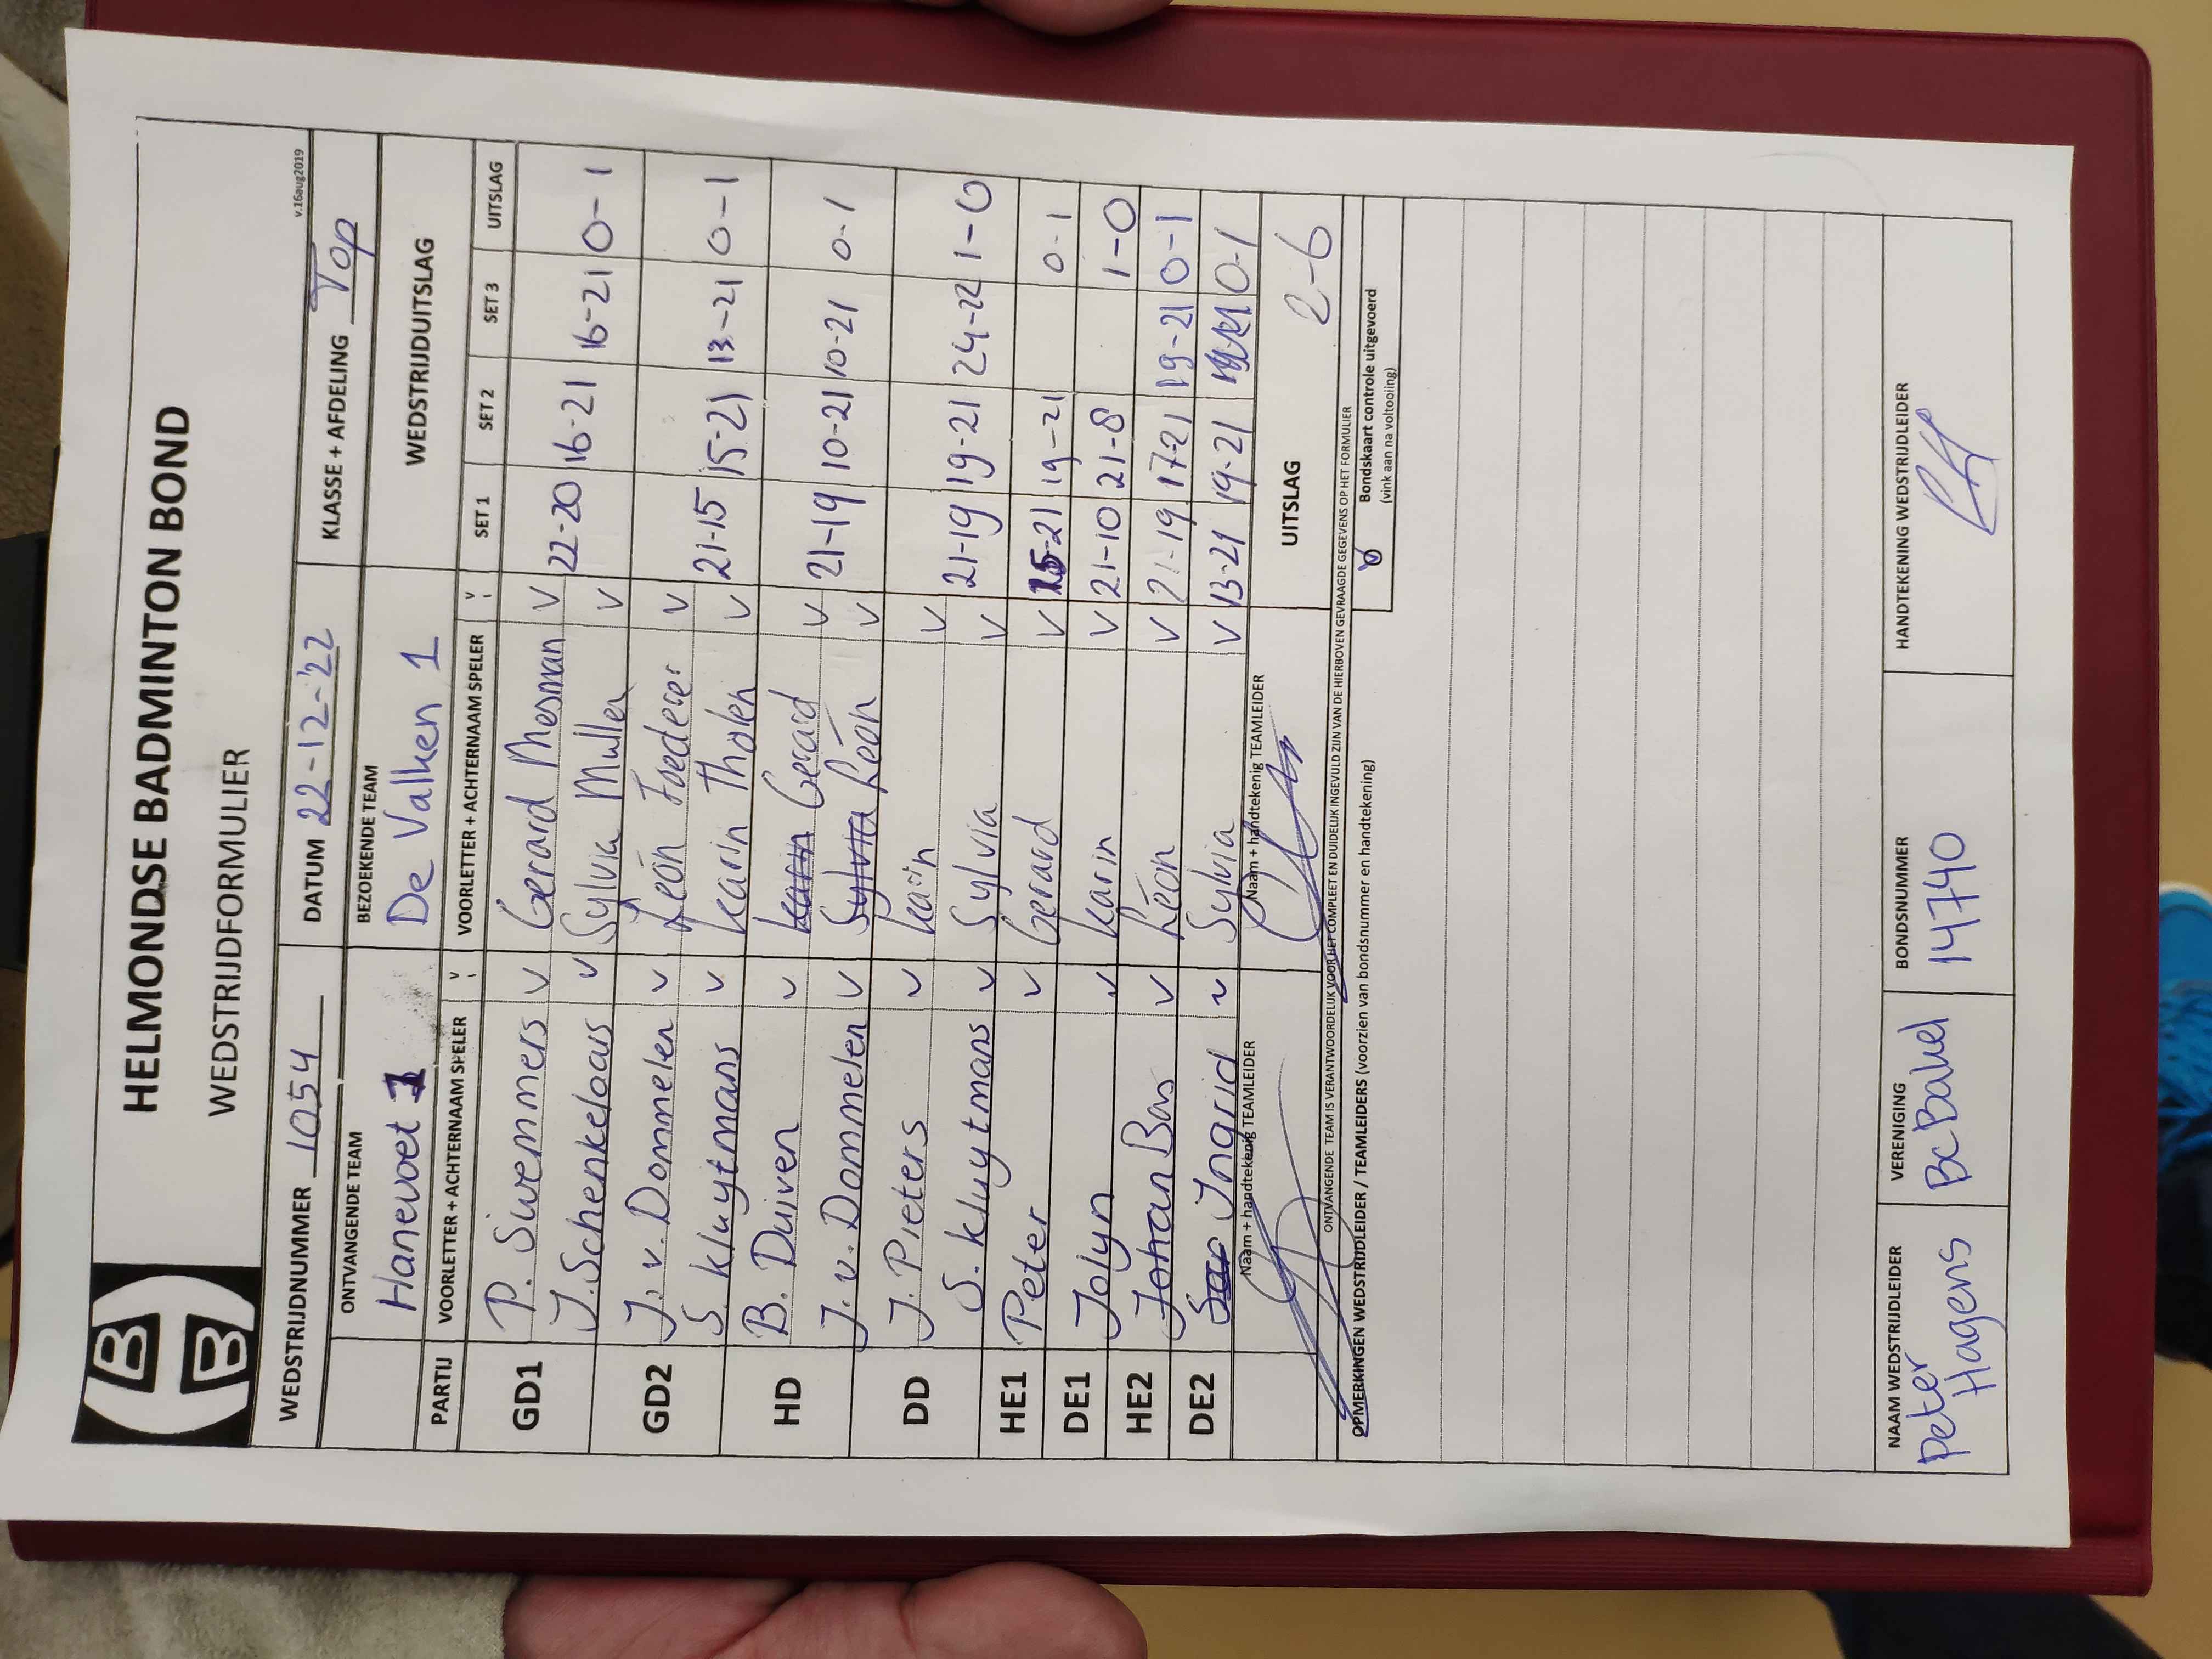 HBB
HELMONDSE BADMINTON BOND
WEDSTRIJDFORMULIER
v.16aug2019
WEDSTRIJDNUMMER 1054 DATUM 22-12-'22 KLASSE + AFDELING Top
ONTVANGENDE TEAM BEZOEKENDE TEAM WEDSTRIJDUITSLAG
Hanevoet 1 De Valken 1
PARTIJ VOORLETTER + ACHTERNAAM SPELER V VOORLETTER + ACHTERNAAM SPELER V SET 1 SET 2 SET 3 UITSLAG
GD1 P. Swemmers V Gerard Mesman V 22-20 16-21 16-21 0-1
J. Schenkelaars V Sylvia Muller V
GD2 J. v. Dommelen V Léon Foederer V 21-15 15-21 13-21 0-1
S. Kluytmans V Karin Tholen V
HD B. Duiven V Karin Gerard V 21-19 10-21 10-21 0-1
J. v. Dommelen V Sylvia Léon V
DD J. Pieters V Karin V 21-19 19-21 24-22 1-0
S. Kluytmans V Sylvia V
HE1 Peter V Gerard V 15-21 19-21 0-1
DE1 Jolyn V Karin V 21-10 21-8 1-0
HE2 Johan Bas V Léon V 21-19 17-21 19-21 0-1
DE2 Ingrid V Sylvia V 13-21 19-21 0-1
Naam + handtekenig TEAMLEIDER Naam + handtekenig TEAMLEIDER UITSLAG 2-6
ONTVANGENDE TEAM IS VERANTWOORDELIJK VOOR HET COMPLEET EN DUIDELIJK INGEVULD ZIJN VAN DE HIERBOVEN GEVRAAGDE GEGEVENS OP HET FORMULIER
OPMERKINGEN WEDSTRIJDLEIDER / TEAMLEIDERS (voorzien van bondsnummer en handtekening) V Bondskaart controle uitgevoerd
(vink aan na voltooiing)
NAAM WEDSTRIJDLEIDER VERENIGING BONDSNUMMER HANDTEKENING WEDSTRIJDLEIDER
Peter Hagens BC Bakel 14740